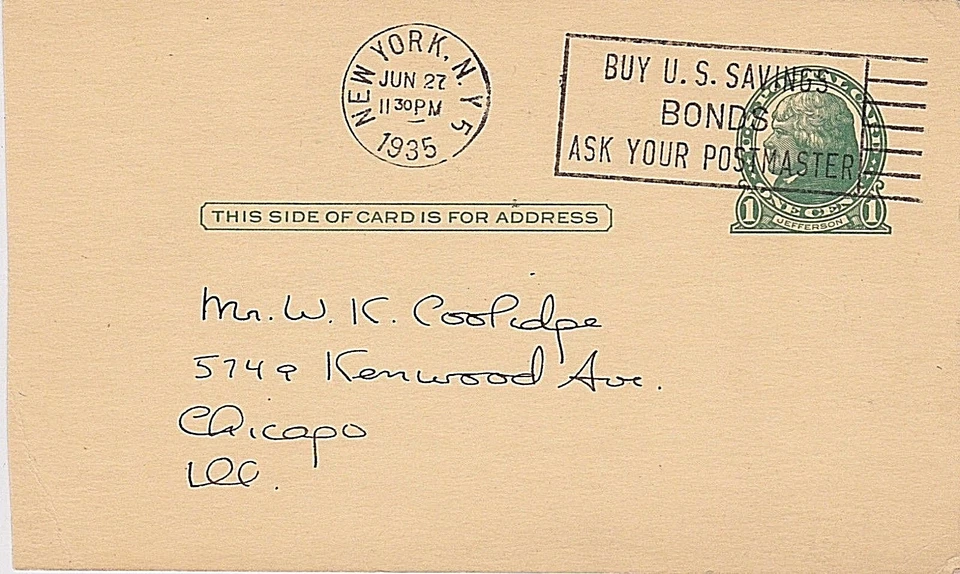 NEW YORK, N.Y. 5
JUN 27
11 30 PM
1935
BUY U.S. SAVINGS
BONDS
ASK YOUR POSTMASTER
ONE CENT
1 JEFFERSON 1
THIS SIDE OF CARD IS FOR ADDRESS
Mr. W. K. Coolidge
5749 Kenwood Ave.
Chicago
Ill.